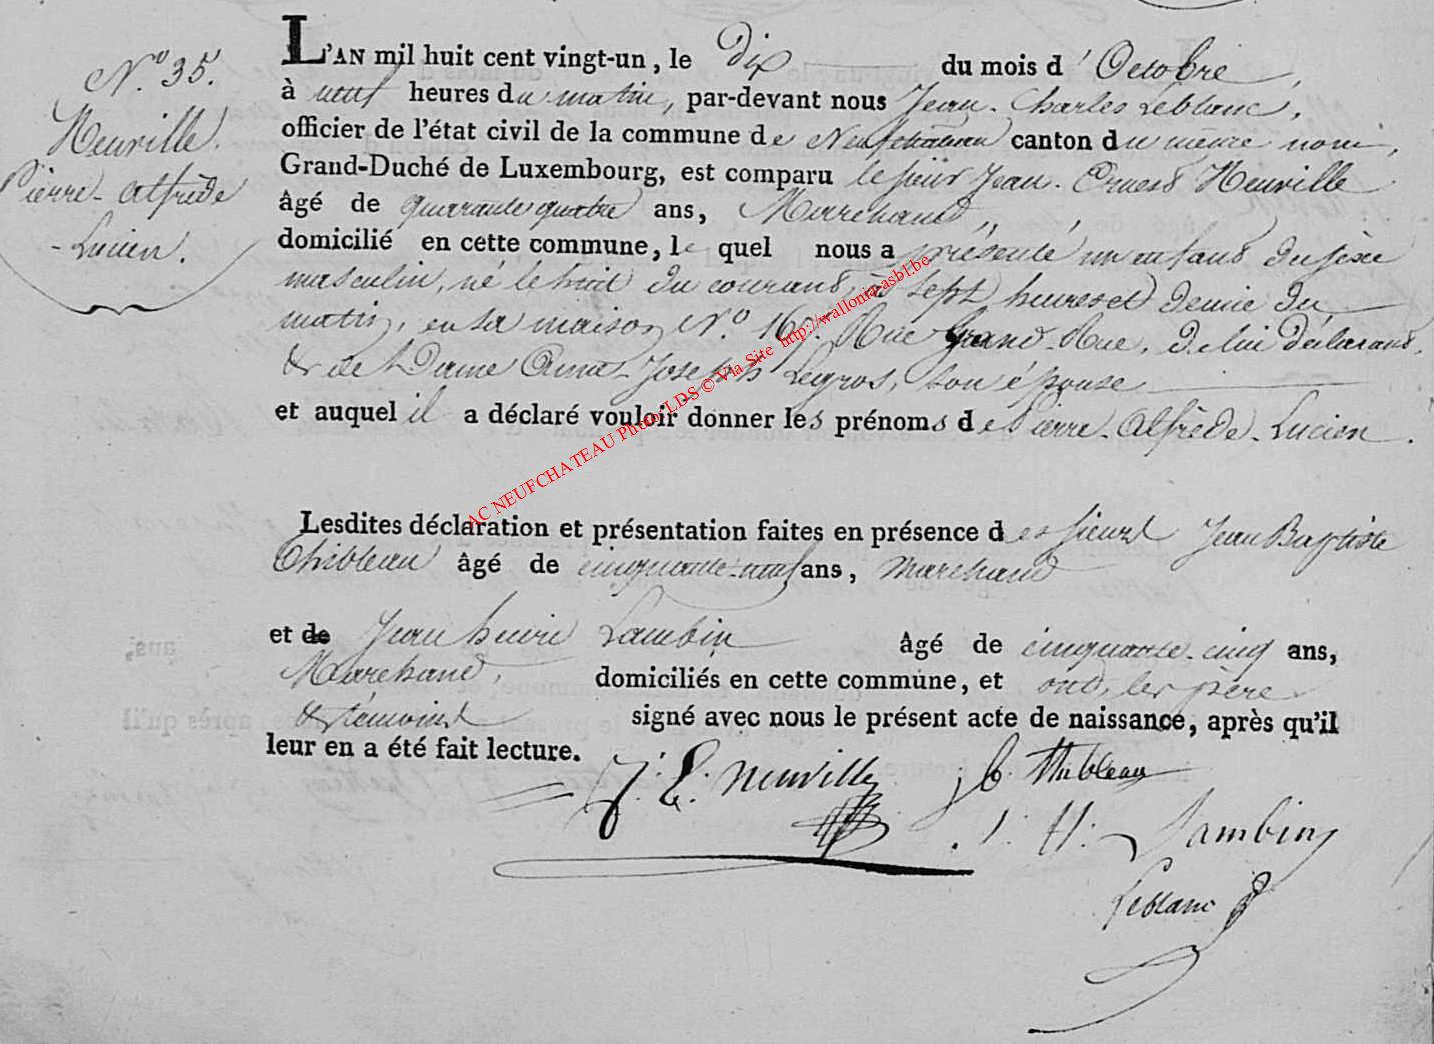 N.º 35.
Neuville.
Pierre-Alfrède
-Lucien.
L'AN mil huit cent vingt-un, le Dix du mois d'Octobre,
à neuf heures du matin, par-devant nous Jean-Charles Leblanc,
officier de l'état civil de la commune de Neufchateau canton du même nom,
Grand-Duché de Luxembourg, est comparu le sieur Jean-Ernest Neuville
âgé de quarante quatre ans, Marchand,
domicilié en cette commune, lequel nous a présenté un enfant du sèxe
masculin, né le huit du courant, à sept heures et demie du
matin, en sa maison N.º 160 Rue Grand-Rue, de lui déclarant,
& de Dame Anne-Joseph Legros, son épouse
et auquel il a déclaré vouloir donner les prénoms de Pierre-Alfrède-Lucien.
Lesdites déclaration et présentation faites en présence des sieurs Jean Baptiste
Thibleau âgé de cinquante-neuf ans, Marchand
et de Jean henri Lambin âgé de cinquante-cinq ans,
Marchand, domiciliés en cette commune, et ont, les père
& témoins signé avec nous le présent acte de naissance, après qu'il
leur en a été fait lecture.
J. E. Neuville j b. Thibleau
J. H. Lambin
Leblanc
AC NEUFCHATEAU Photo LDS © Via Site http://wallonia-asbl.be